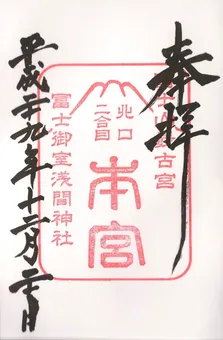 奉拝
士山最古宮
北口
二合目
本宮
富士御室浅間神社
平成二十九年十二月日